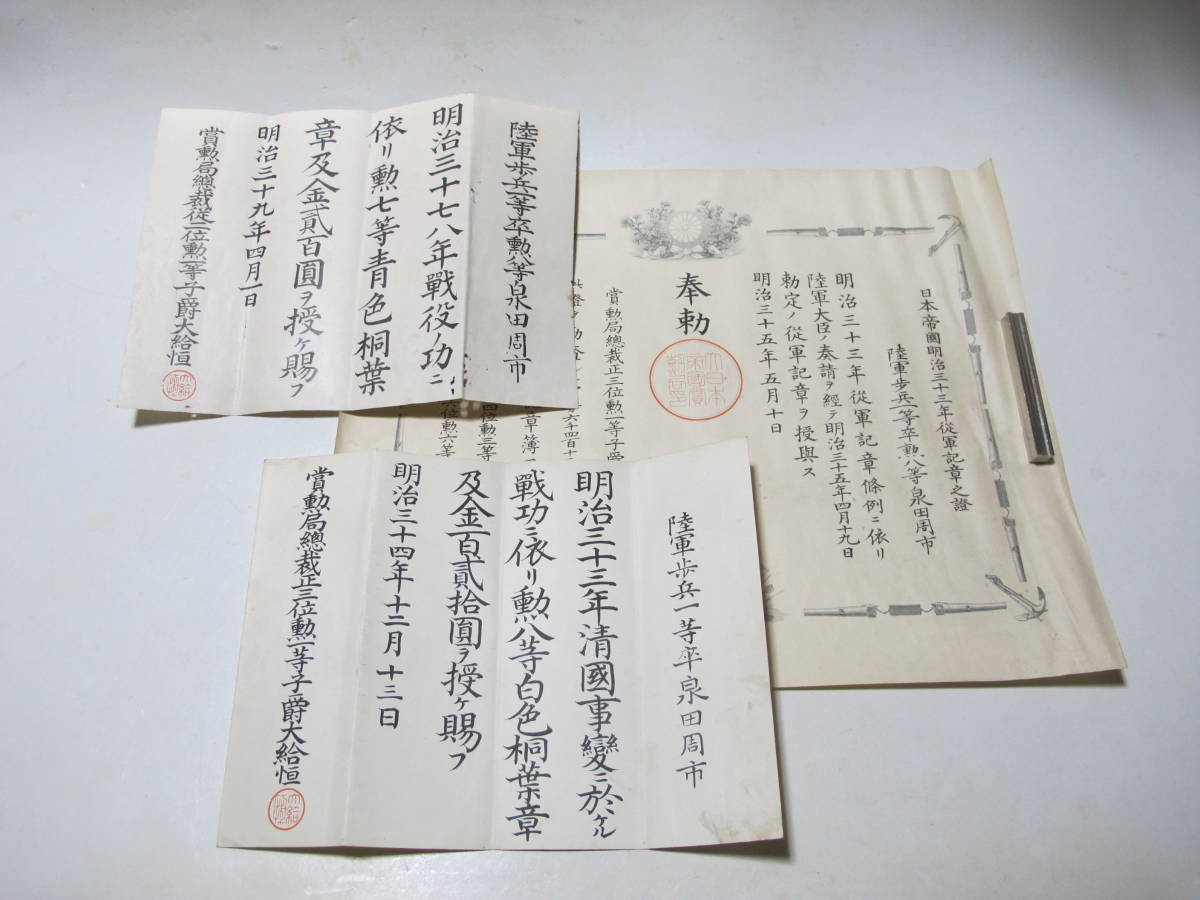 陸軍歩兵一等卒勲八等泉田周市
明治三十七八年戰役ノ功ニ
依リ勲七等青色桐葉
章及金貳百圓ヲ授ケ賜フ
明治三十九年四月一日
賞勲局總裁從二位勲一等子爵大給恒
日本帝國明治三十三年從軍記章之證
陸軍歩兵一等卒勲八等泉田周市
明治三十三年從軍記章條例ニ依リ
陸軍大臣ノ奏請ヲ經テ明治三十五年四月十九日
勅定ノ從軍記章ヲ授與ス
明治三十五年五月十日
奉勅
大日本
帝國賞
勲局印
賞勲局總裁正三位勲一等子爵
陸軍歩兵一等卒泉田周市
明治三十三年清國事變ニ於ケル
戰功ニ依リ勲八等白色桐葉章
及金百貳拾圓ヲ授ケ賜フ
明治三十四年十二月十三日
賞勲局總裁正三位勲一等子爵大給恒